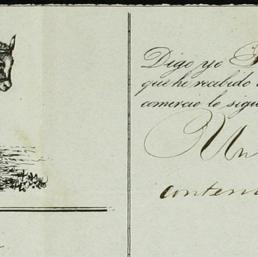 Digo yo
que he recibido
comercio lo sigu
Un
conten